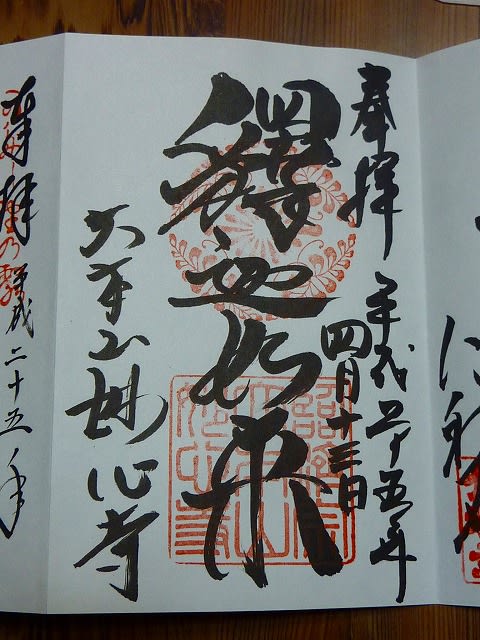 奉拝 平成二十五年
四月十三日
釋迦如来
大本山妙心寺
奉拝 平成二十五年